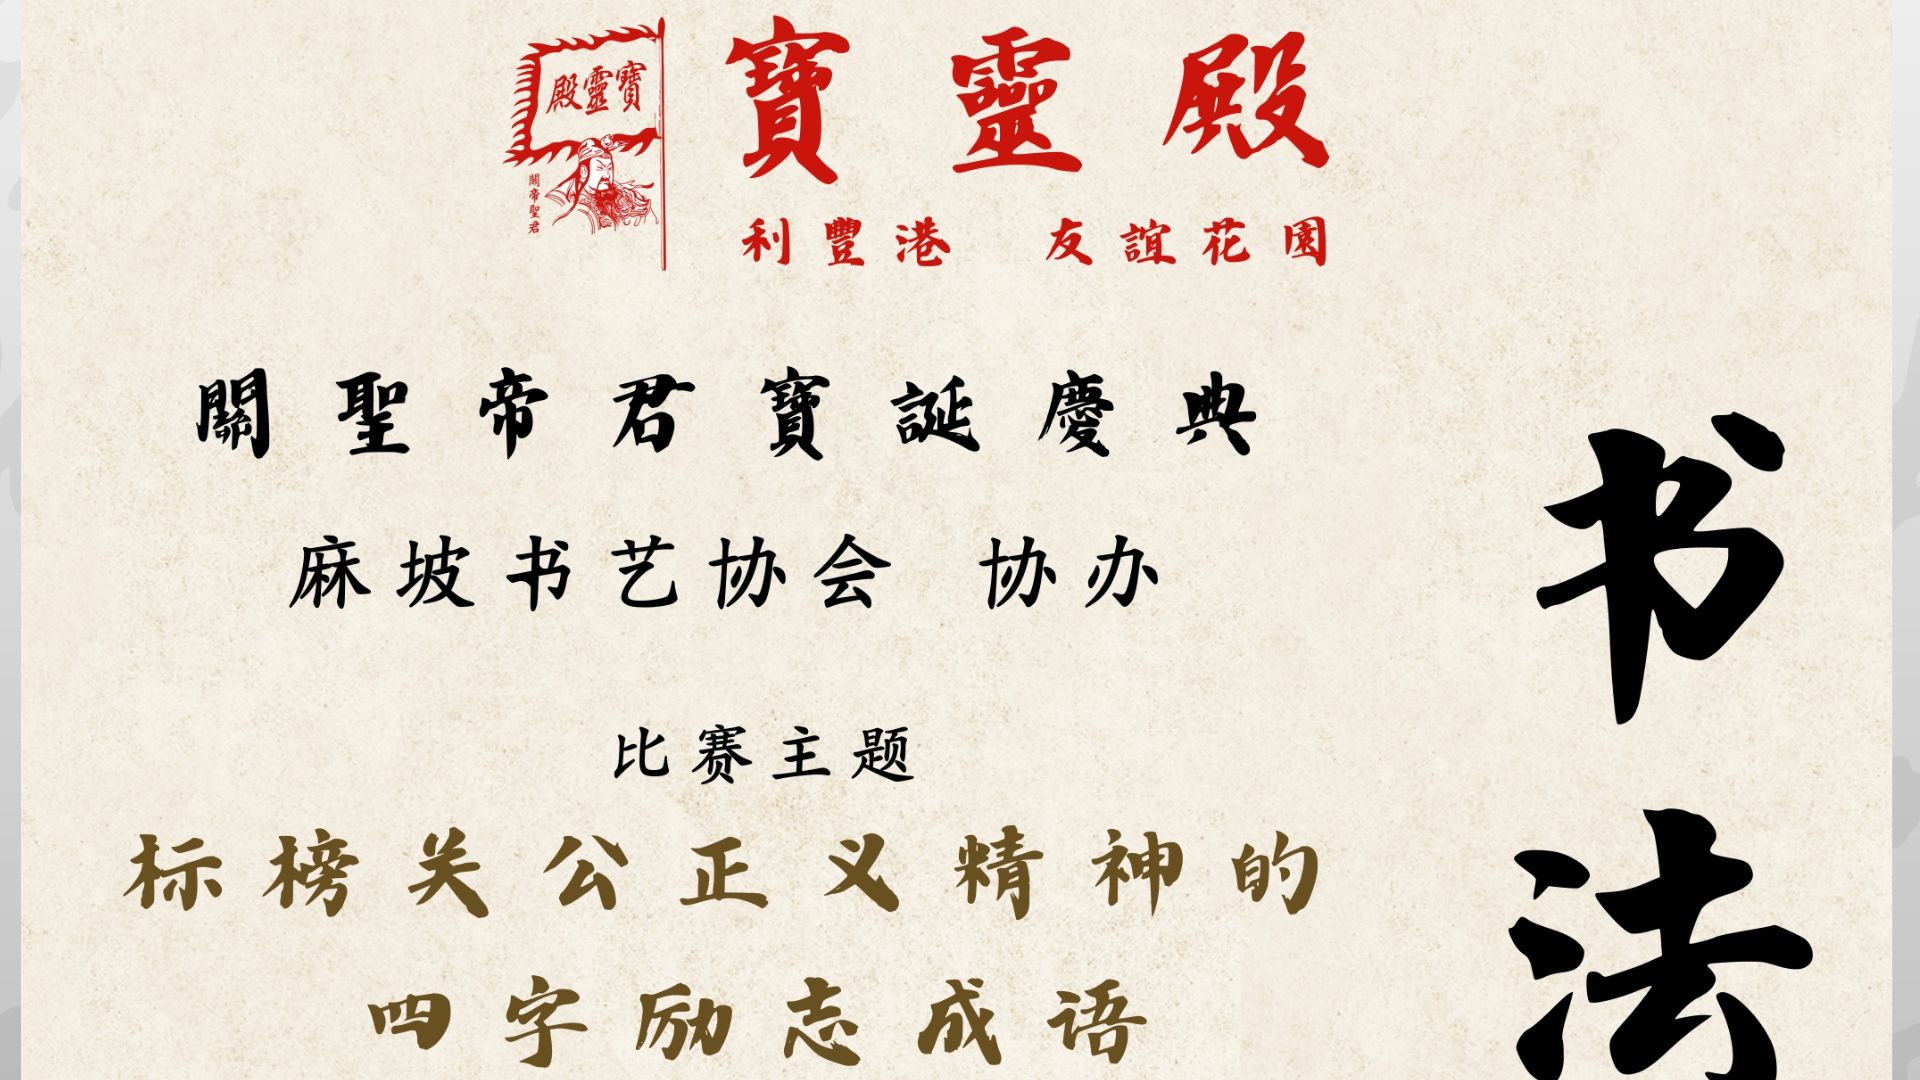 寶靈殿
關帝聖君
寶靈殿
利豐港 友誼花園
關聖帝君寶誕慶典
麻坡书艺协会 协办
比赛主题
标榜关公正义精神的
四字励志成语
书法